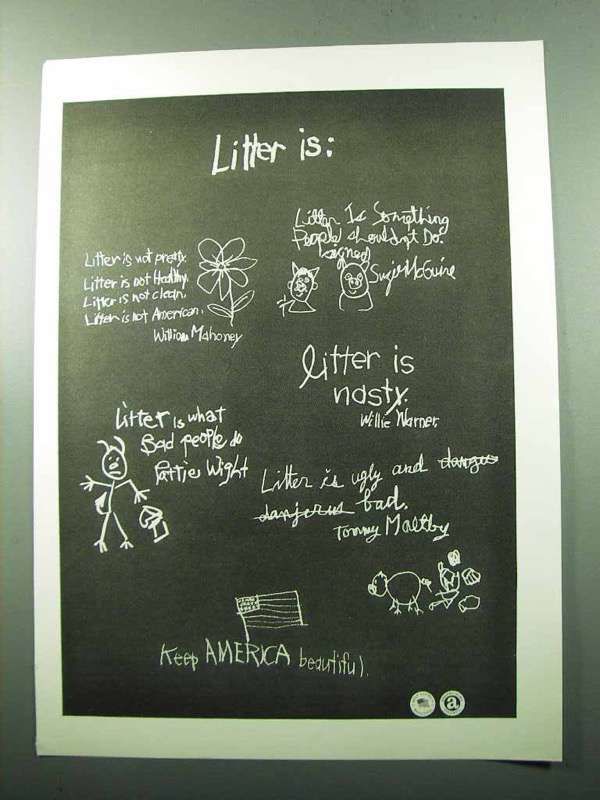 Litter is:
Litter is not pretty.
Litter is not Healthy.
Litter is not clean.
Litter is not American.
William Mahoney
Litter Is Something
People shouldn't Do.
signed
Suzie McGuire
litter is
nasty.
Willie Warner.
Litter is what
Bad people do
Patties Wight
Litter is ugly and dangus
danjerus bad.
Tommy Maltby
Keep AMERICA beautiful.
a